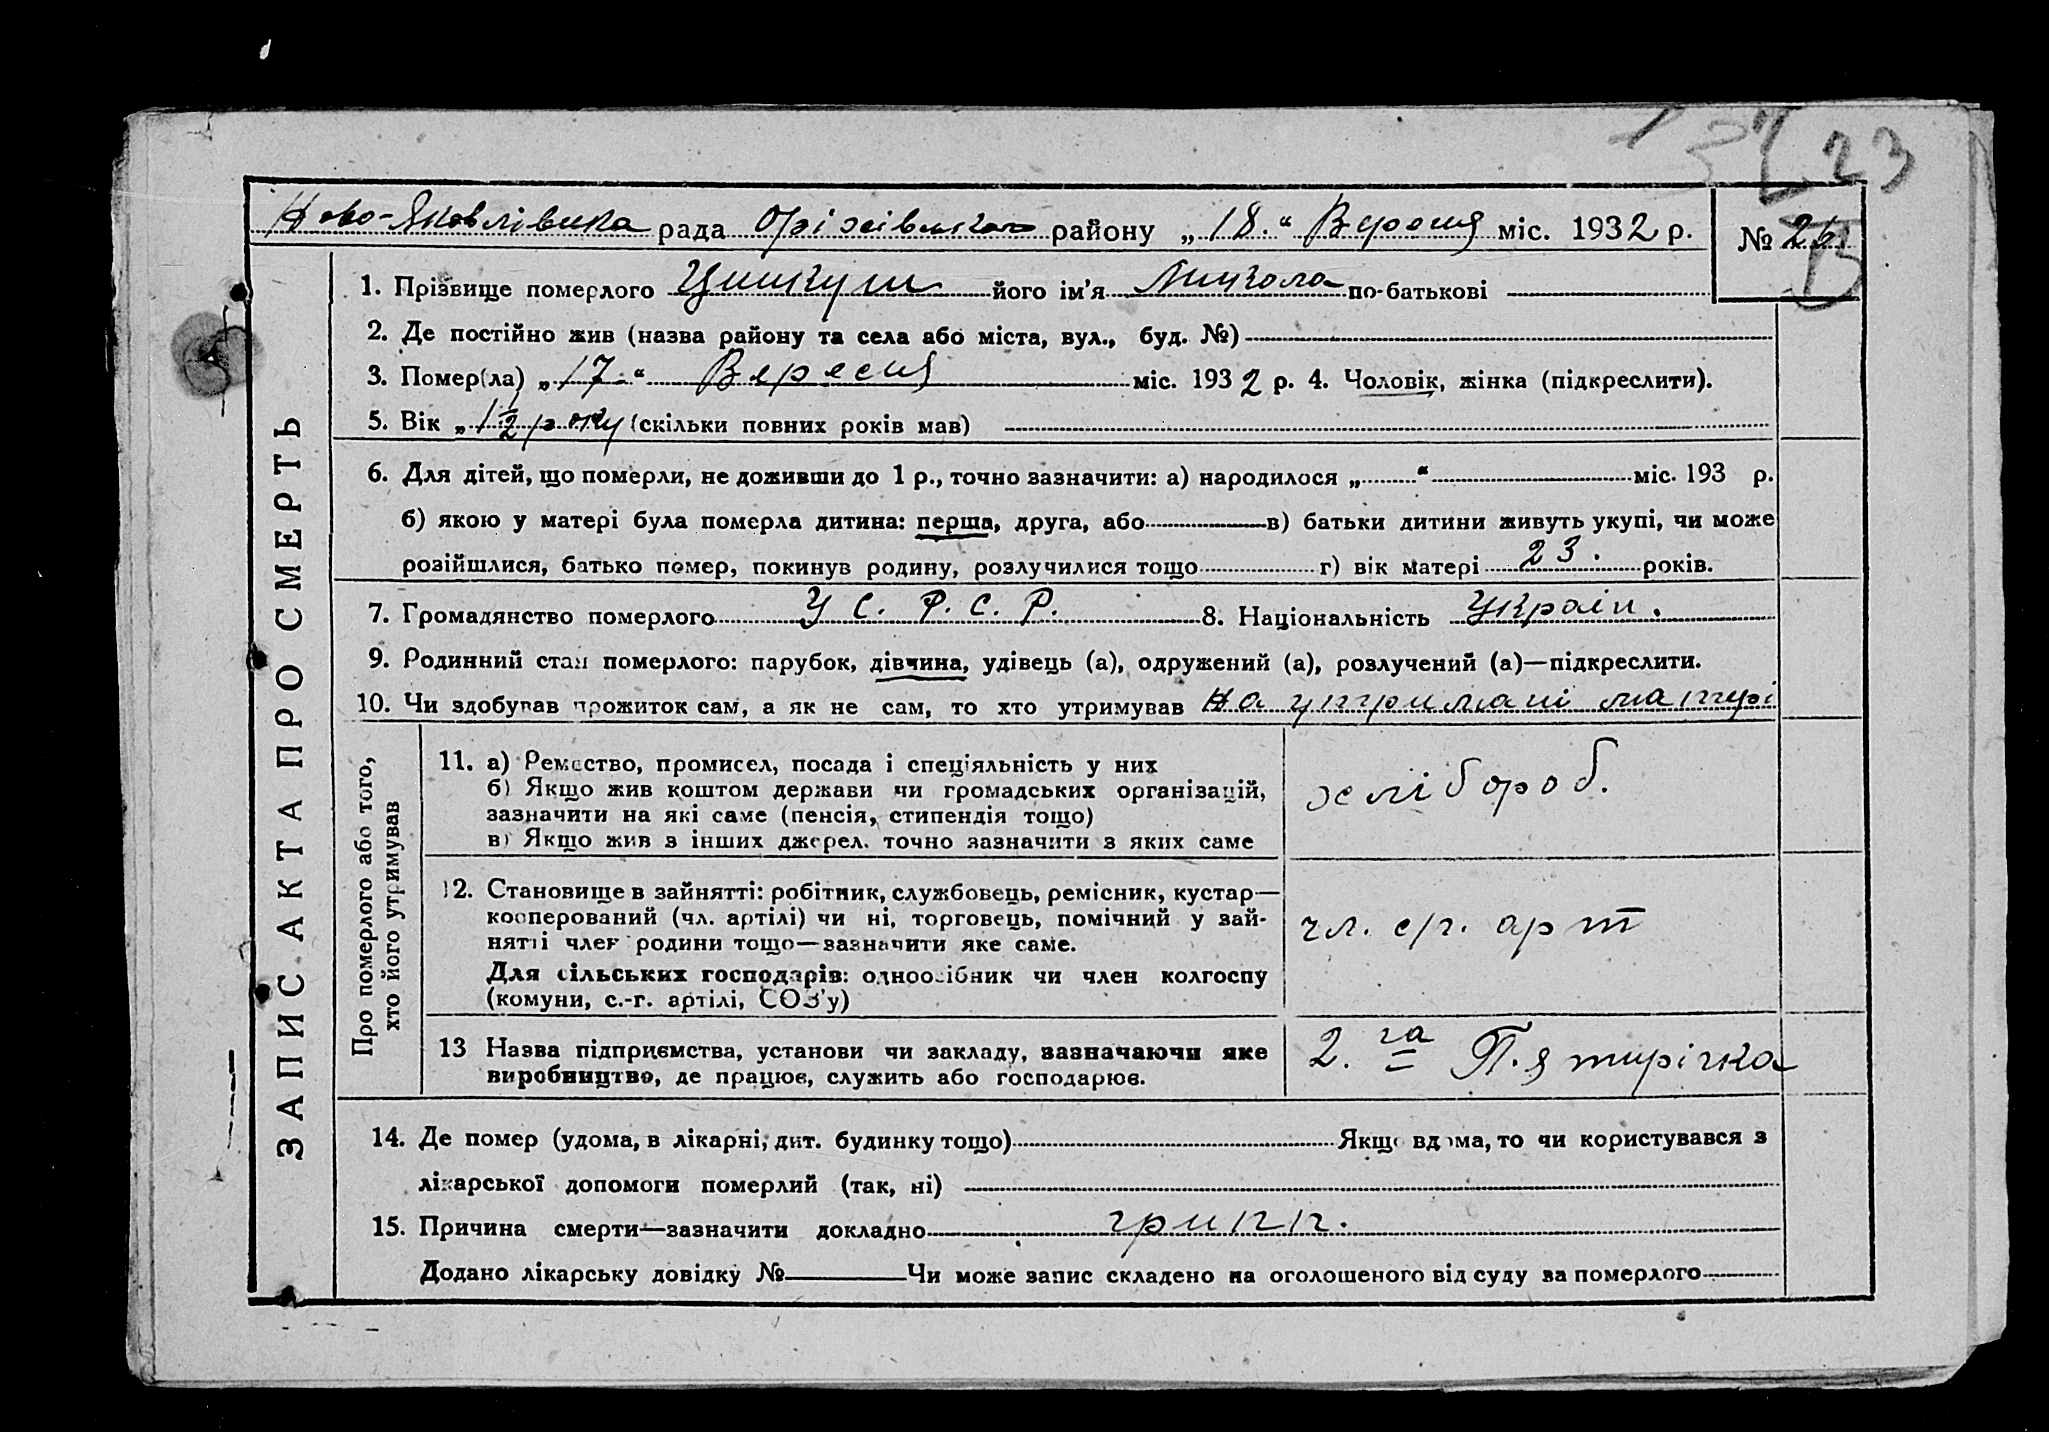 23
Ново-Яковлівська рада Оріхівського району „18.“ Вересня міс. 1932 р. № 26
ЗАПИС АКТА ПРО СМЕРТЬ
1. Прізвище померлого його ім'я Микола по-батькові
2. Де постійно жив (назва району та села або міста, вул., буд. №)
3. Помер(ла) „17.“ Вересня міс. 1932 р. 4. Чоловік, жінка (підкреслити).
5. Вік „1 1/2 року (скільки повних років мав)
6. Для дітей, що померли, не доживши до 1 р., точно зазначити: а) народилося „ “ міс. 193 р.
б) якою у матері була померла дитина: перша, друга, або в) батьки дитини живуть укупі, чи може
розійшлися, батько помер, покинув родину, розлучилися тощо г) вік матері 23. років.
7. Громадянство померлого У С. Р. С. Р. 8. Національність Україн.
9. Родинний стан померлого: парубок, дівчина, удівець (а), одружений (а), розлучений (а)—підкреслити.
10. Чи здобував прожиток сам, а як не сам, то хто утримував На утримані матері
Про померлого або того,
хто його утримував
11. а) Ремество, промисел, посада і спеціяльність у них
б) Якщо жив коштом держави чи громадських організацій,
зазначити на які саме (пенсія, стипендія тощо)
в) Якщо жив з інших джерел, точно зазначити з яких саме
хлібороб.
12. Становище в зайнятті: робітник, службовець, ремісник, кустар—
кооперований (чл. артілі) чи ні, торговець, помічний у зай-
нятті член родини тощо—зазначити яке саме.
Для сільських господарів: одноосібник чи член колгоспу
(комуни, с.-г. артілі, СОЗ'у)
чл. с/г. арт
13 Назва підприємства, установи чи закладу, зазначаючи яке
виробництво, де працює, служить або господарює.
2. га П.ятирічка
14. Де помер (удома, в лікарні, дит. будинку тощо) Якщо вдома, то чи користувався з
лікарської допомоги померлий (так, ні)
15. Причина смерти—зазначити докладно грипп.
Додано лікарську довідку № Чи може запис складено на оголошеного від суду за померлого